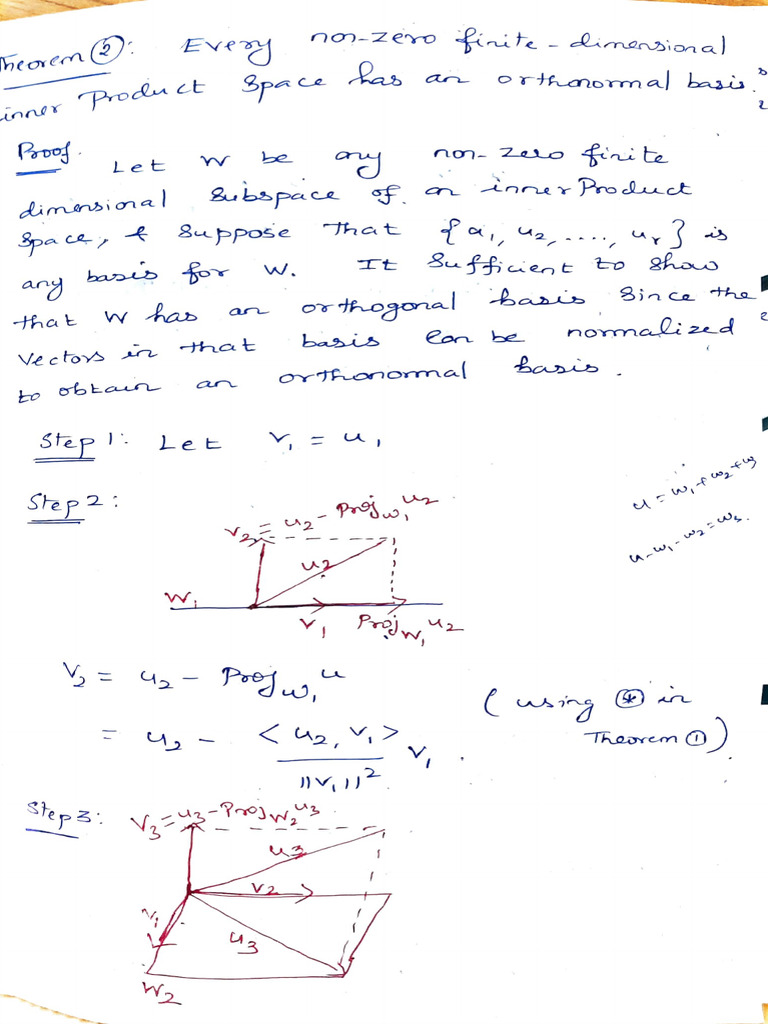 Theorem ②: Every non-zero finite-dimensional
inner Product Space has an orthonormal basis.
Proof. Let W be any non-zero finite
dimensional Subspace of an inner Product
Space, & Suppose that {u₁, u₂, ...., uᵣ} is
any basis for W. It Sufficient to show
that W has an orthogonal basis Since the
Vectors in that basis can be normalized
to obtain an orthonormal basis.
Step 1: Let v₁ = u₁
u = w₁ + w₂ + w₃
u - w₁ - w₂ = w₃.
Step 2:
v₂ = u₂ - Proj_w₁ u₂
u₂
W₁
v₁ Proj_W₁ u₂
V₂ = u₂ - Proj_w₁ u
= u₂ - <u₂, v₁> / ||v₁||² v₁ (using ⊛ in
Theorem ①).
Step 3: V₃ = u₃ - Proj_W₂ u₃
u₃
v₂
v₁
u₃
W₂